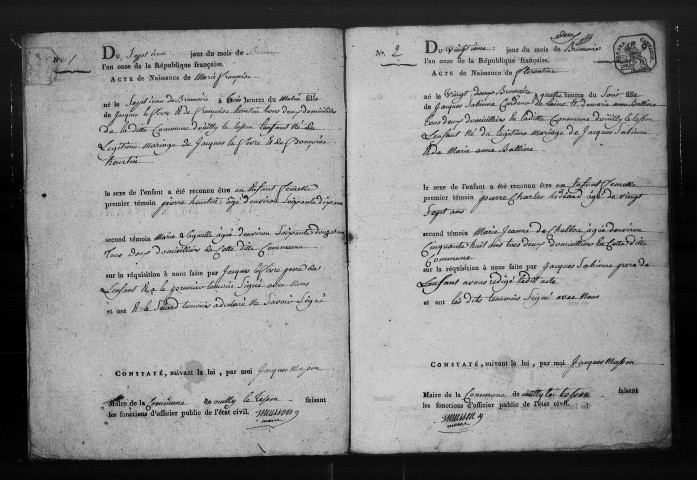 N.° 1
Du Septième jour du mois de Brumaire
l'an onze de la République française.
ACTE de Naissance de Marie françoise
né le Septième de Brumaire à trois heures du Matin fille
de Jacques le fevre & de françoise hourtin tous deux domiciliés
de laditte Commune d'ouilly le tesson Lenfant Né de
Légitime mariage de Jacques Le fevre & de françoise
hourtin
le sexe de l'enfant a été reconnu être un Enfant femelle
premier témoin pierre hourtin agé d'environ Soixante dix ans
second témoin Marie agée d'environ Soixante
Tous deux domiciliés de Cette ditte Commune
sur la réquisition à nous faite par Jacques Le fevre pere de
Lenfant & le premier temoin Signé avec nous
et ont & le Second temoin a declaré Ne Savoir Signé
CONSTATÉ, suivant la loi, par moi Jacques Masson
Maire de la Commune de ouilly le tesson faisant
les fonctions d'officier public de l'état civil.
musson
maire
N.° 2
Du vingt deuxième jour du mois de Brumaire
l'an onze de la République française.
ACTE de Naissance de florentine
né le Vingt deux Brumaire à quatre heures du Soir fille
de Jacques Sabienne & de marie anne
tous deux domiciliés de laditte Commune d'ouilly le tesson
Lenfant Né de Legitime mariage de Jacques Sabienne
& de Marie anne
le sexe de l'enfant a été reconnu être un Enfant femelle
premier témoin pierre Charles agé de vingt
Sept ans
second témoin Marie Jeanne de Chollos agée d'environ
Cinquante huit ans tous deux domiciliés de Cette ditte
Commune
sur la réquisition à nous faite par Jacques Sabienne pere de
Lenfant avons redigé ledit acte
et ont les dits temoins Signé avec Nous
CONSTATÉ, suivant la loi, par moi Jacques Masson
Maire de la Commune de ouilly le tesson faisant
les fonctions d'officier public de l'état civil.
musson
maire